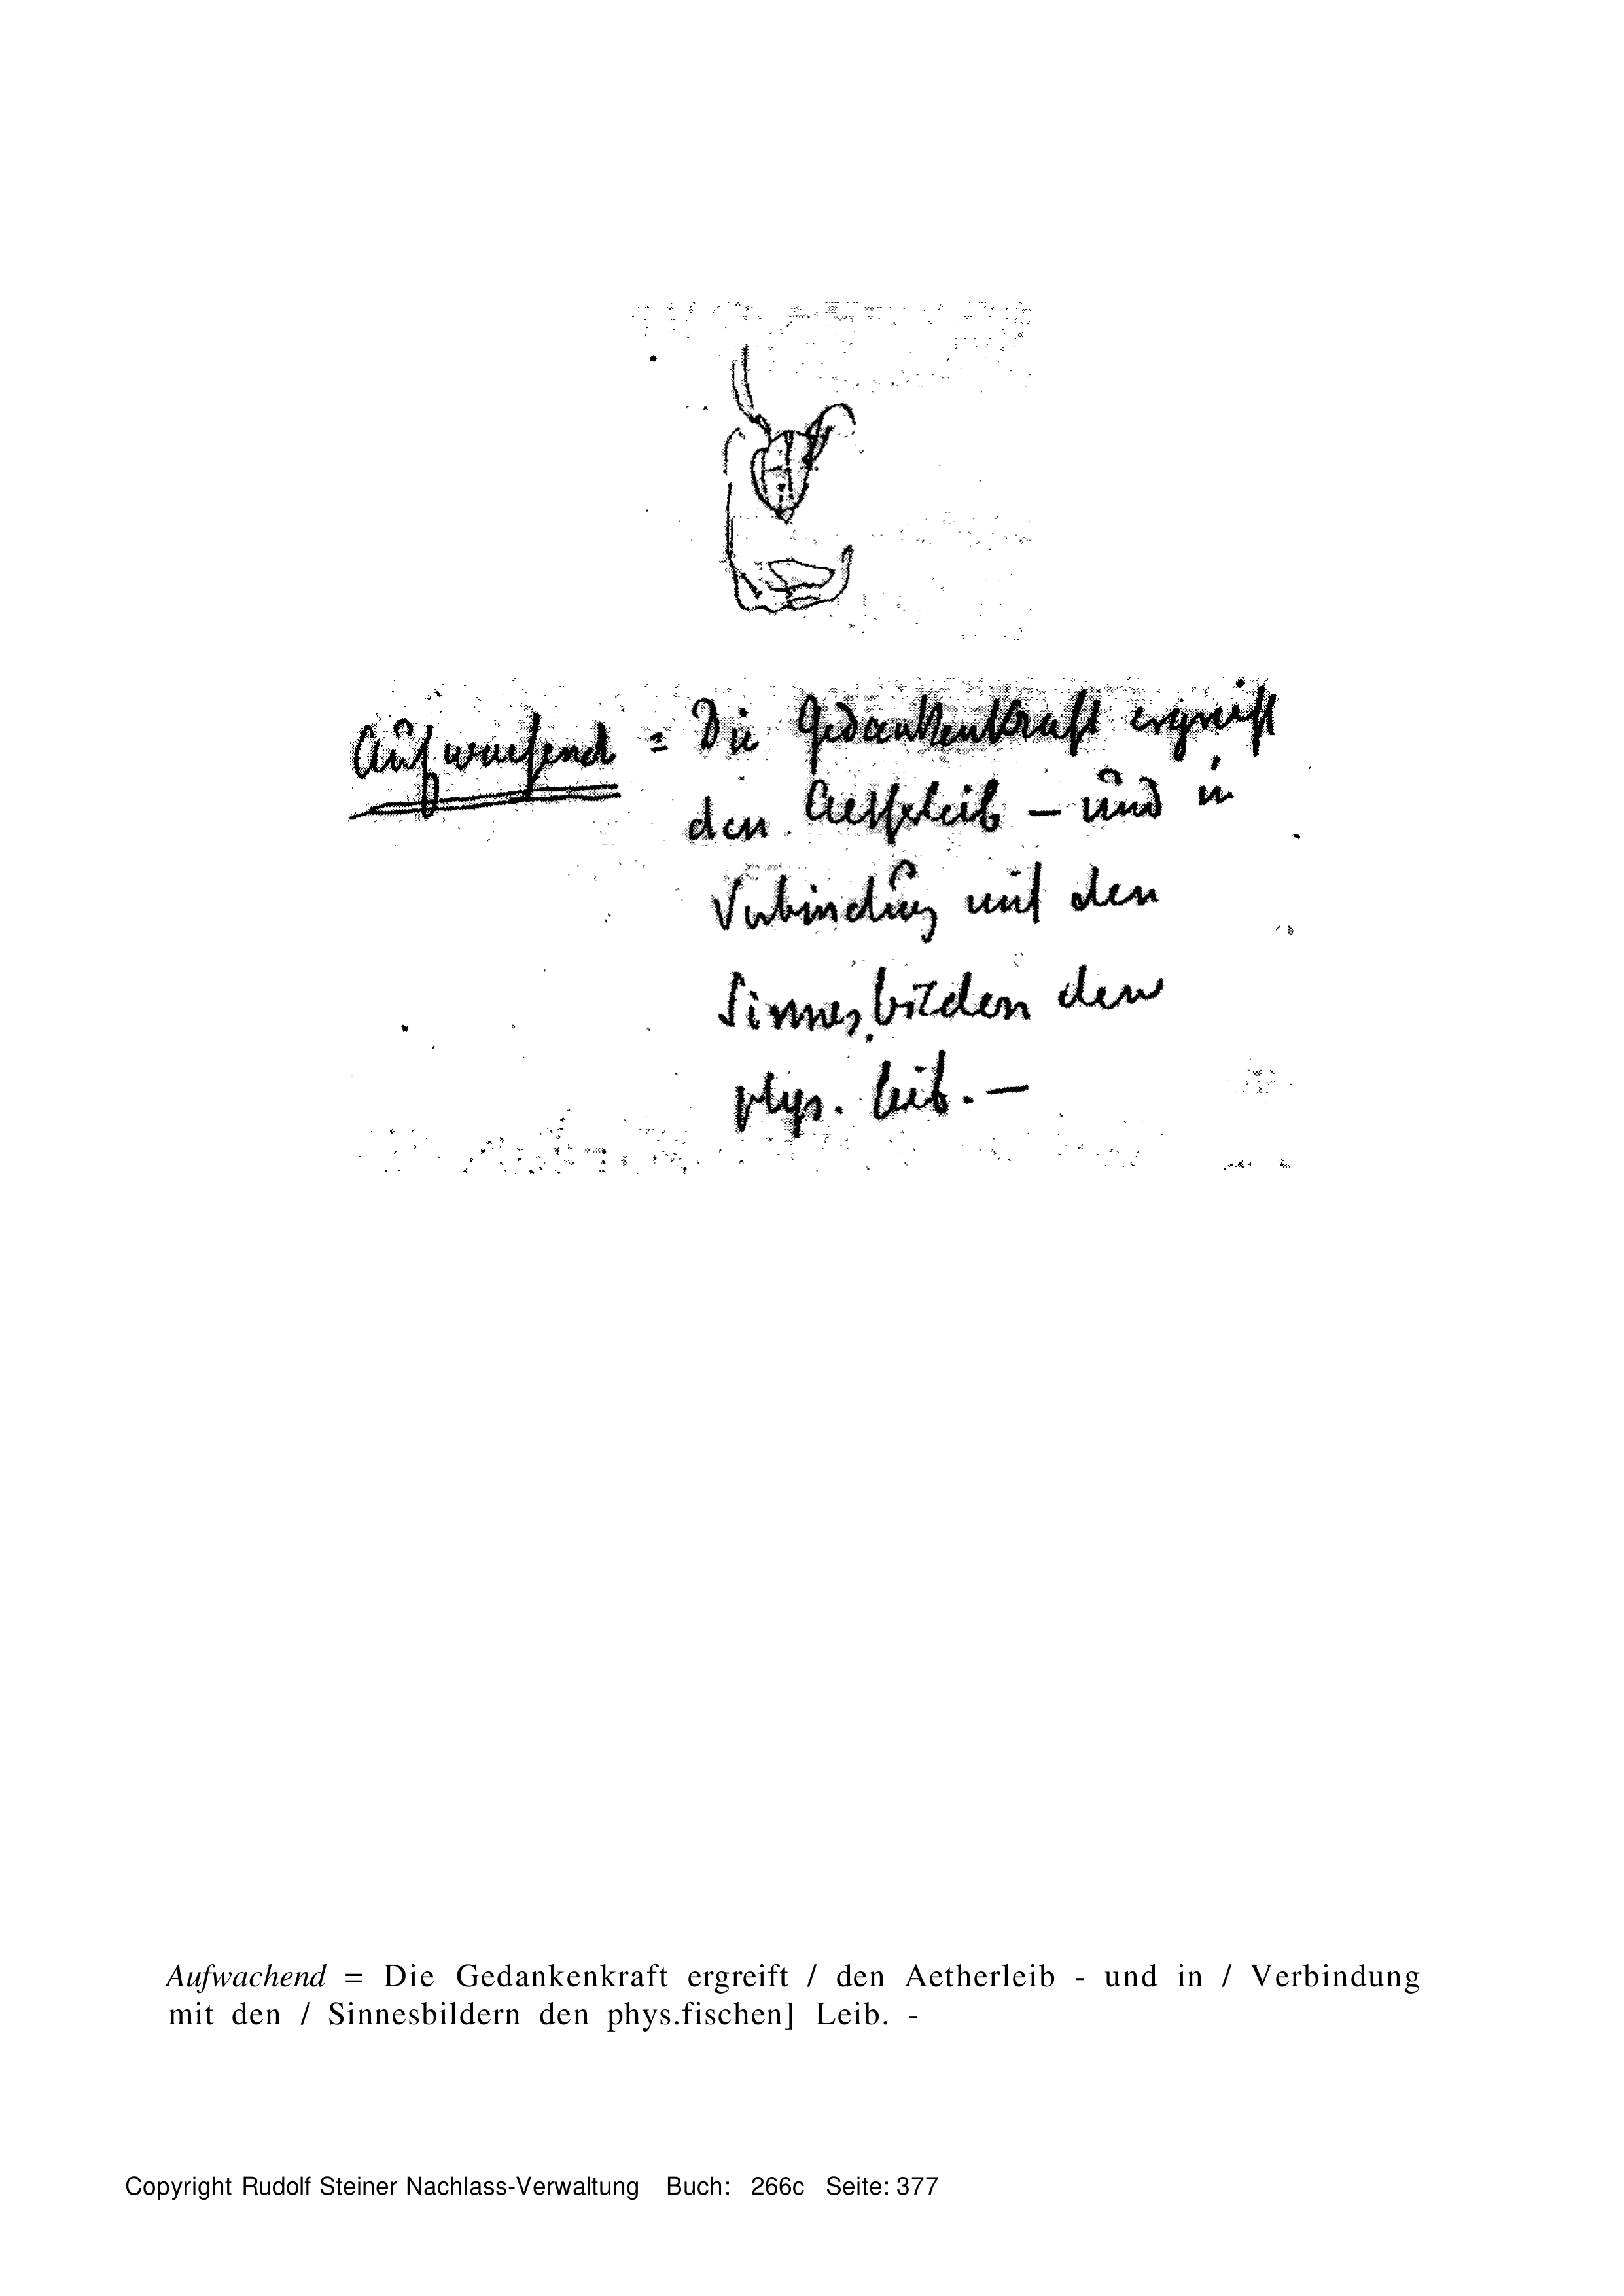 Aufwachend = Die Gedankenkraft ergreift
den Aetherleib – und in
Verbindung mit den
Sinnesbildern den
phys. Leib. –
Aufwachend = Die Gedankenkraft ergreift / den Aetherleib - und in / Verbindung
mit den / Sinnesbildern den phys.fischen] Leib. -
Copyright Rudolf Steiner Nachlass-Verwaltung Buch: 266c Seite: 377